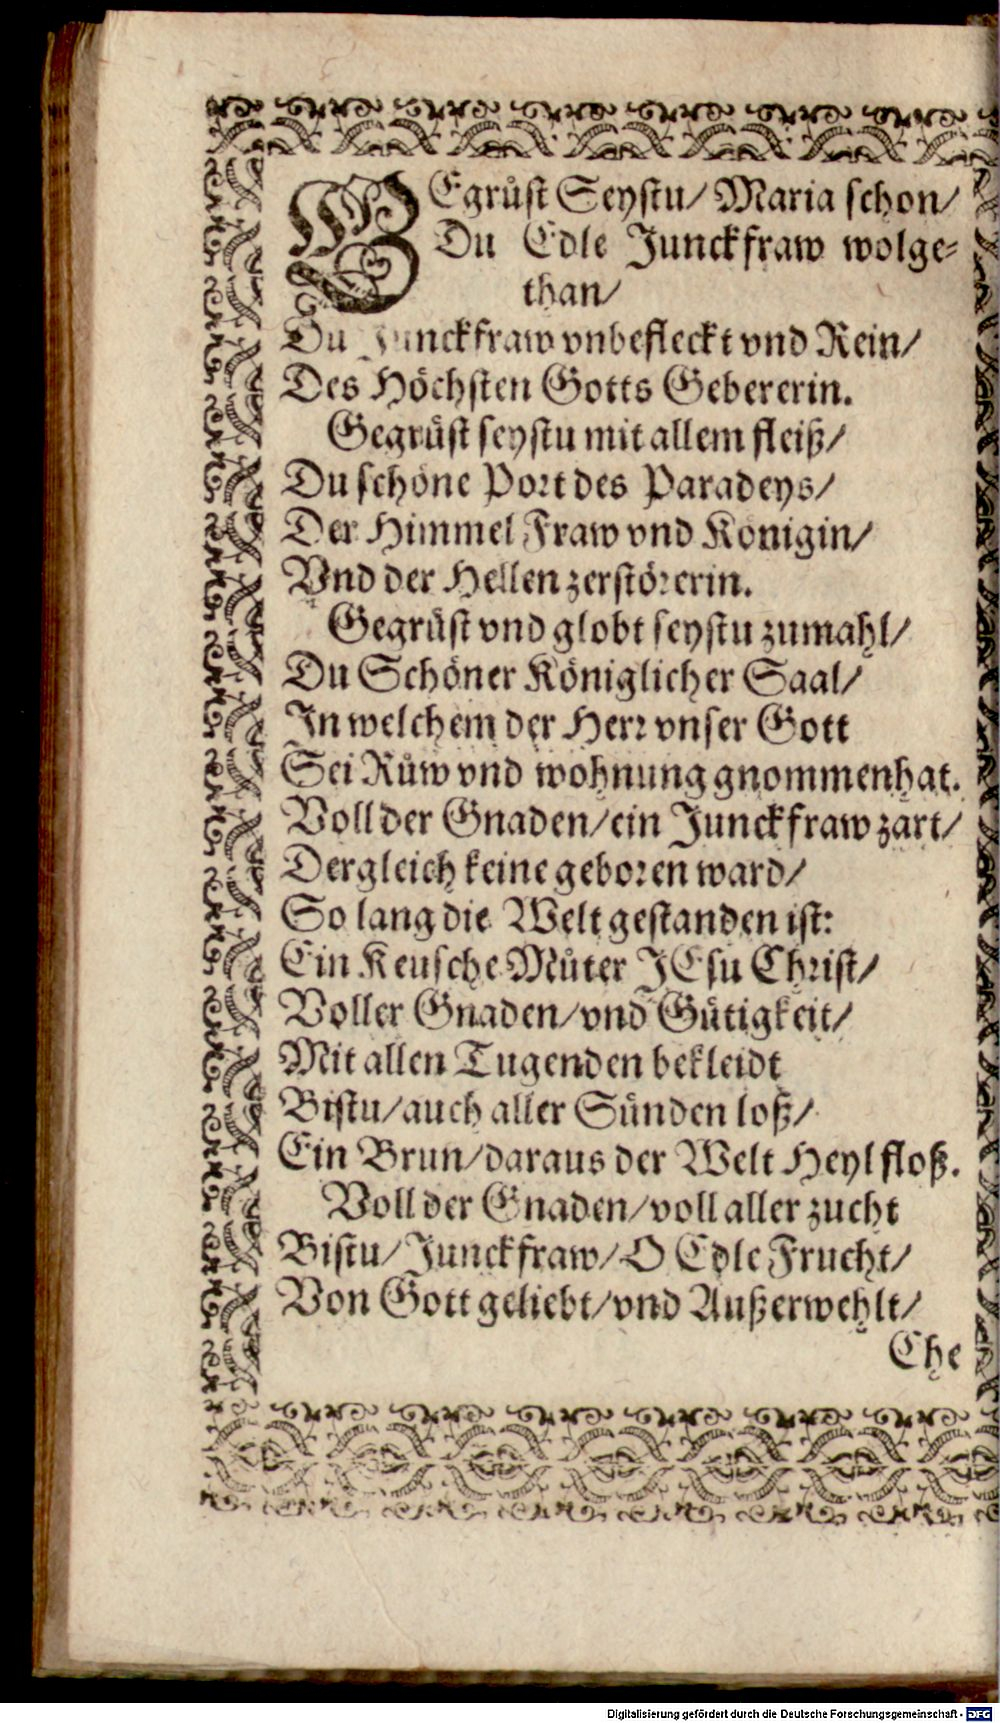 GEgrůst Seystu/ Maria schon/
Du Edle Junckfraw wolge⸗
than/
Du Junckfraw vnbefleckt vnd Rein/
Des Höchsten Gotts Gebererin.
Gegrůst seystu mit allem fleiß/
Du schöne Port des Paradeys/
Der Himmel Fraw vnd Königin/
Vnd der Hellen zerstörerin.
Gegrůst vnd globt seystu zumahl/
Du Schöner Königlicher Saal/
In welchem der Herr vnser Gott
Sei Růw vnd wohnung gnommen hat.
Voll der Gnaden/ ein Junckfraw zart/
Dergleich keine geboren ward/
So lang die Welt gestanden ist:
Ein Keusche Můter JEsu Christ/
Voller Gnaden/ vnd Gütigkeit/
Mit allen Tugenden bekleidt
Bistu/ auch aller Sünden loß/
Ein Brun/ daraus der Welt Heyl floß.
Voll der Gnaden/ voll aller zucht
Bistu/ Junckfraw/ O Edle Frucht/
Von Gott geliebt/ vnd Außerwehlt/
Ehe
Digitalisierung gefördert durch die Deutsche Forschungsgemeinschaft - DFG